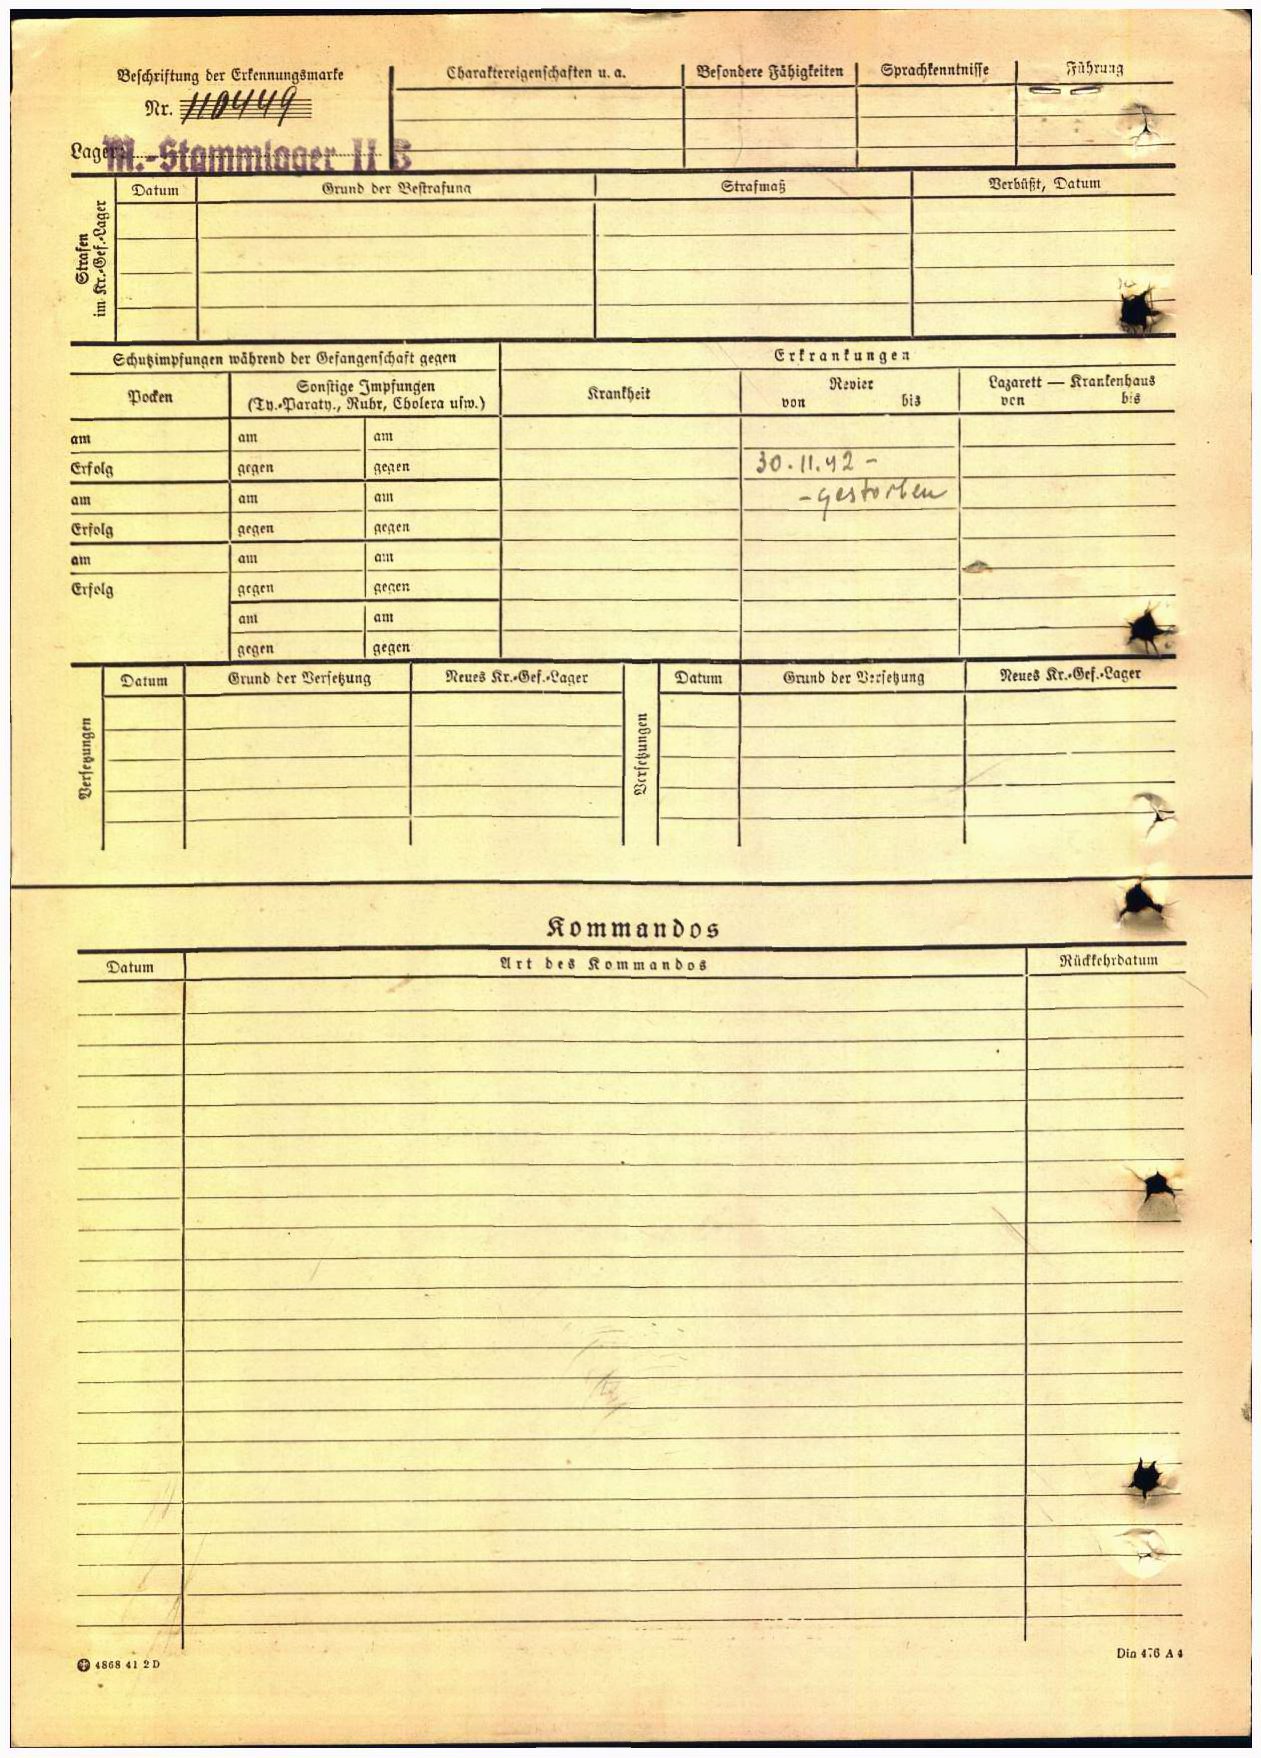 Beschriftung der Erkennungsmarke
Nr. 110449
Lager: M.-Stammlager II B
Charaktereigenschaften u. a.
Besondere Fähigkeiten
Sprachkenntnisse
Führung
Strafen
im Kr.-Gef.-Lager
Datum
Grund der Bestrafung
Strafmaß
Verbüßt, Datum
Schutzimpfungen während der Gefangenschaft gegen
Erkrankungen
Pocken
Sonstige Impfungen
(Ty.-Paraty., Ruhr, Cholera usw.)
Krankheit
Revier
von bis
Lazarett — Krankenhaus
von bis
am am am
Erfolg gegen gegen 30.11.42 -
am am am - gestorben
Erfolg gegen gegen
am am am
Erfolg gegen gegen
am am
gegen gegen
Versetzungen
Datum
Grund der Versetzung
Neues Kr.-Gef.-Lager
Versetzungen
Datum
Grund der Versetzung
Neues Kr.-Gef.-Lager
Kommandos
Datum
Art des Kommandos
Rückkehrdatum
4868 41 2 D
Din 476 A 4